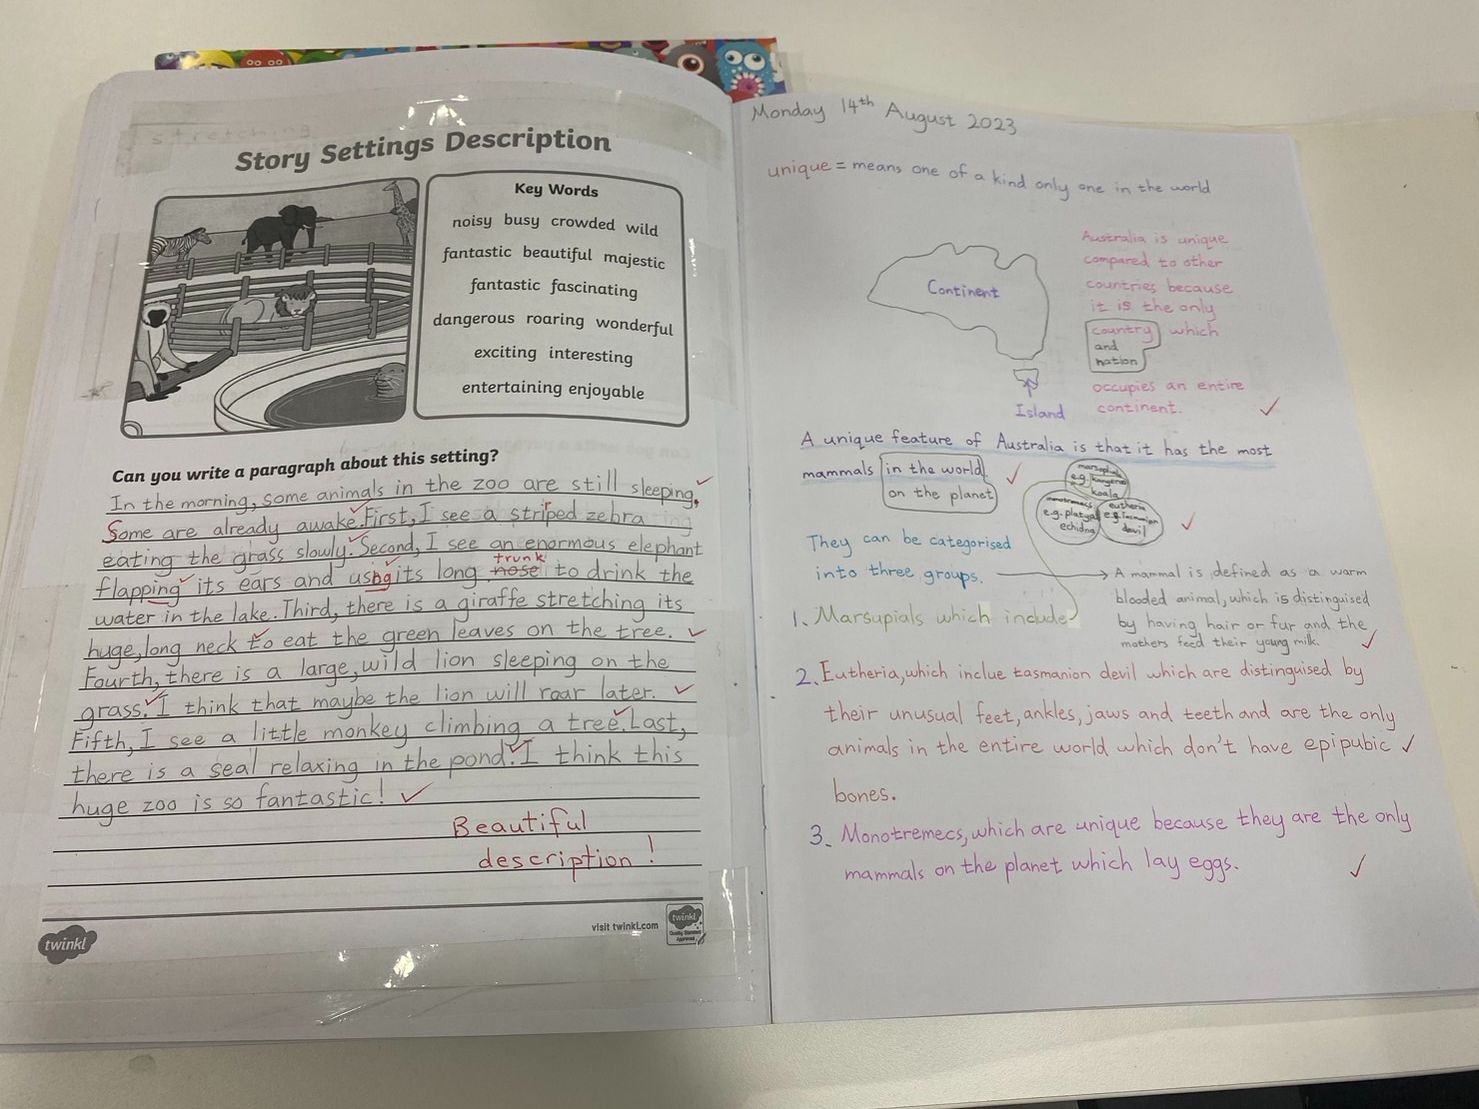 stretching
Story Settings Description
Key Words
noisy busy crowded wild
fantastic beautiful majestic
fantastic fascinating
dangerous roaring wonderful
exciting interesting
entertaining enjoyable
Can you write a paragraph about this setting?
In the morning, some animals in the zoo are still sleeping.
Some are already awake. First, I see a striped zebra
eating the grass slowly. Second, I see an enormous elephant
trunk
flapping its ears and using its long nose to drink the
water in the lake. Third, there is a giraffe stretching its
huge, long neck to eat the green leaves on the tree.
Fourth, there is a large, wild lion sleeping on the
grass. I think that maybe the lion will roar later.
Fifth, I see a little monkey climbing a tree. Last,
there is a seal relaxing in the pond. I think this
huge zoo is so fantastic!
Beautiful
description!
twinkl
visit twinkl.com
twinkl
Quality Standard
Approved
Monday 14th August 2023
unique = means one of a kind only one in the world
Continent
Island
Australia is unique
compared to other
countries because
it is the only
country which
and
nation
occupies an entire
continent.
A unique feature of Australia is that it has the most
mammals in the world
on the planet
marsupials
e.g. kangeroo
koala
monotremecs
e.g. platypus
echidna
eutheria
e.g. tasmanian
devil
They can be categorised
into three groups.
A mammal is defined as a warm
blooded animal, which is distinguised
by having hair or fur and the
mothers feed their young milk.
1. Marsupials which include
2. Eutheria, which inclue tasmanion devil which are distinguised by
their unusual feet, ankles, jaws and teeth and are the only
animals in the entire world which don't have epipubic
bones.
3. Monotremecs, which are unique because they are the only
mammals on the planet which lay eggs.